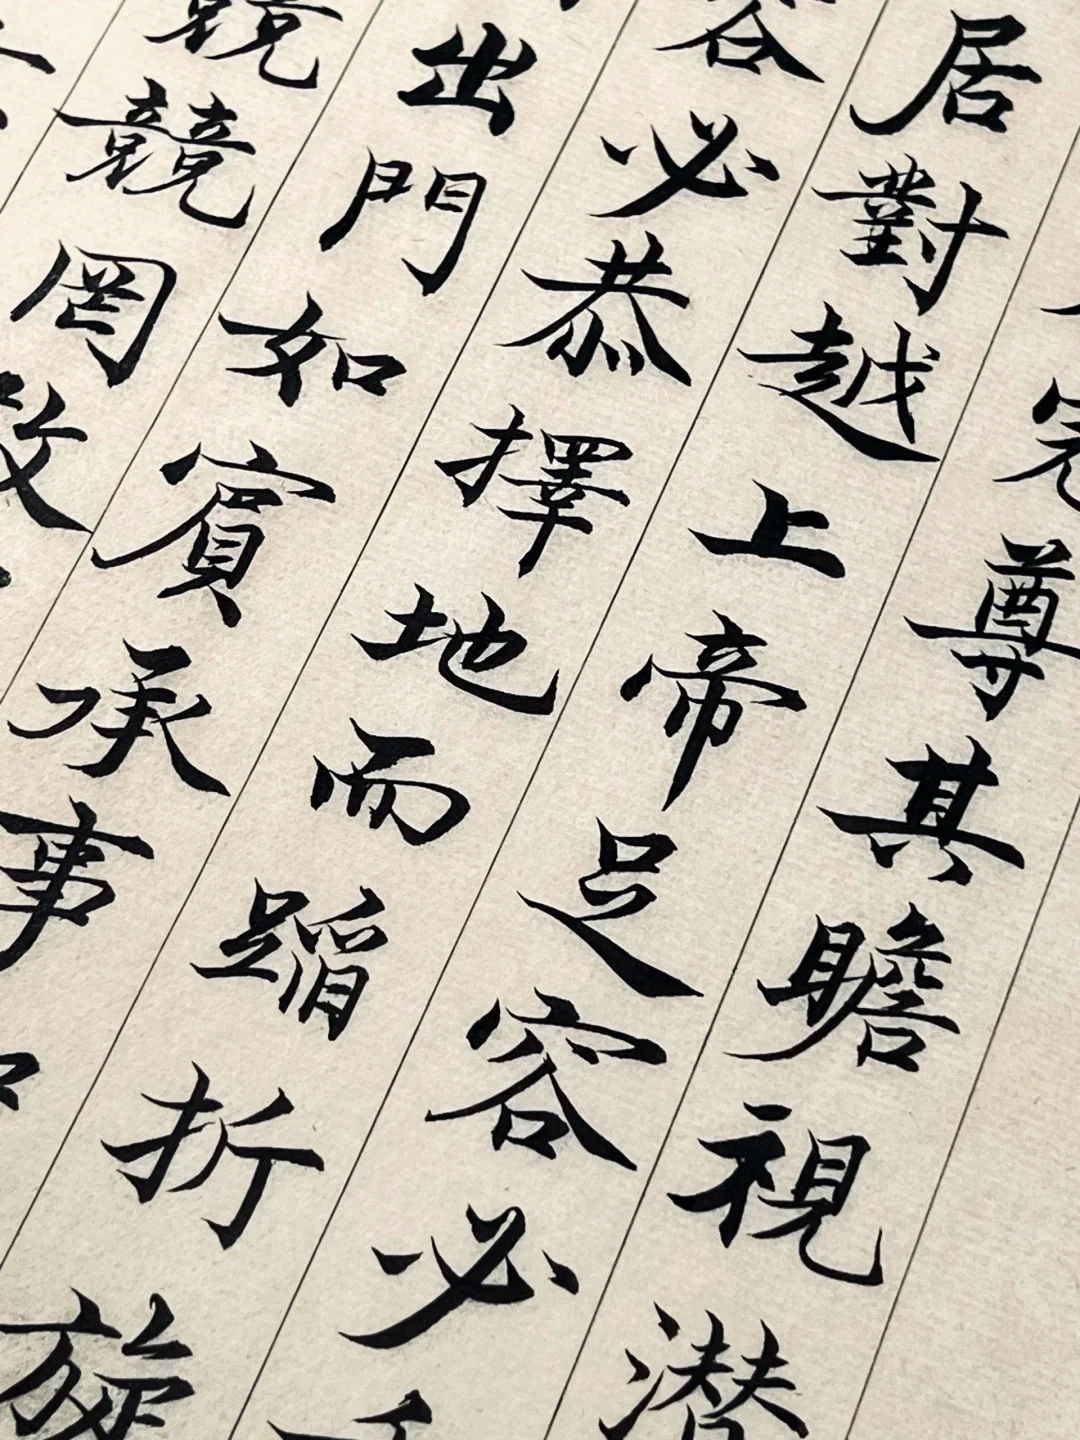 尊其瞻視潛
居對越上帝足容必
容必恭擇地而蹈折旋
出門如賓承事
競競罔敢